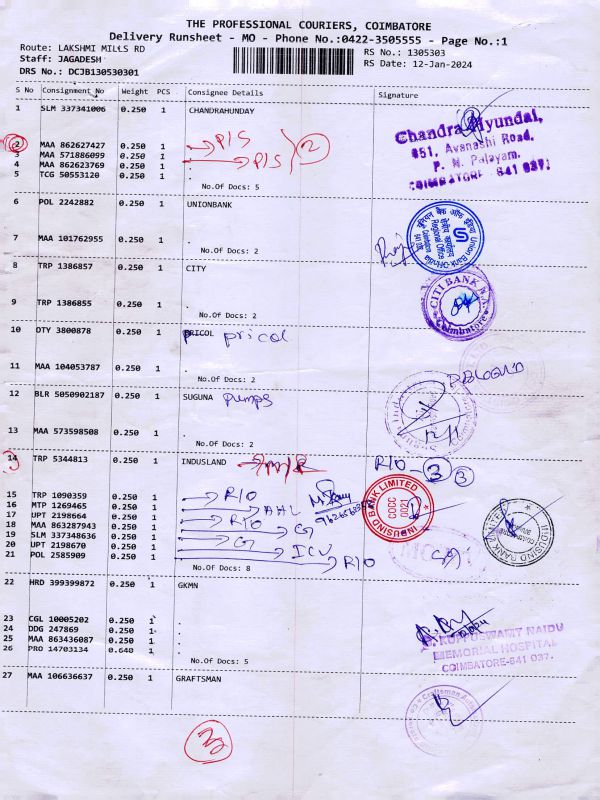 THE PROFESSIONAL COURIERS, COIMBATORE
Delivery Runsheet - MO - Phone No.:0422-3505555 - Page No.:1
Route: LAKSHMI MILLS RD
RS No.: 1305303
Staff: JAGADESH
RS Date: 12-Jan-2024
DRS No.: DCJB130530301
S No Consignment No Weight PCS Consignee Details Signature
1 SLM 337341006 0.250 1 CHANDRAHUNDAY
Chandra Hyundai,
451, Avanashi Road,
P. N. Palayam,
COIMBATORE - 641 037.
2 MAA 862627427 0.250 1 . P/S
3 MAA 571886099 0.250 1 . P/S 2
4 MAA 862623769 0.250 1 .
5 TCG 50553120 0.250 1 .
No.Of Docs: 5
6 POL 2242882 0.250 1 UNIONBANK
Union Bank Of India
Regional Office
Coimbatore
7 MAA 101762955 0.250 1 .
No.Of Docs: 2
8 TRP 1386857 0.250 1 CITY
CITI BANK N.A
Coimbatore
9 TRP 1386855 0.250 1 .
No.Of Docs: 2
10 OTY 3800878 0.250 1 PRICOL pricol
11 MAA 104053787 0.250 1 .
No.Of Docs: 2
12 BLR 5050902187 0.250 1 SUGUNA pumps
13 MAA 573598508 0.250 1 .
No.Of Docs: 2
14 TRP 5344813 0.250 1 INDUSLAND R/O - 3 3
15 TRP 1090359 0.250 1 R/O
INDUSIND BANK LIMITED
16 MTP 1269465 0.250 1
17 UPT 2198664 0.250 1 R/O
18 MAA 863287943 0.250 1 G
19 SLM 337348636 0.250 1 G
20 UPT 2198670 0.250 1 ICU
21 POL 2585909 0.250 1 R/O
No.Of Docs: 8
22 HRD 399399872 0.250 1 GKMN
23 CGL 10005202 0.250 1 .
24 DDG 247869 0.250 1 .
25 MAA 863436087 0.250 1 .
26 PRO 14703134 0.640 1 .
No.Of Docs: 5
KUPPUSWAMY NAIDU
MEMORIAL HOSPITAL
COIMBATORE-641 037.
27 MAA 106636637 0.250 1 GRAFTSMAN